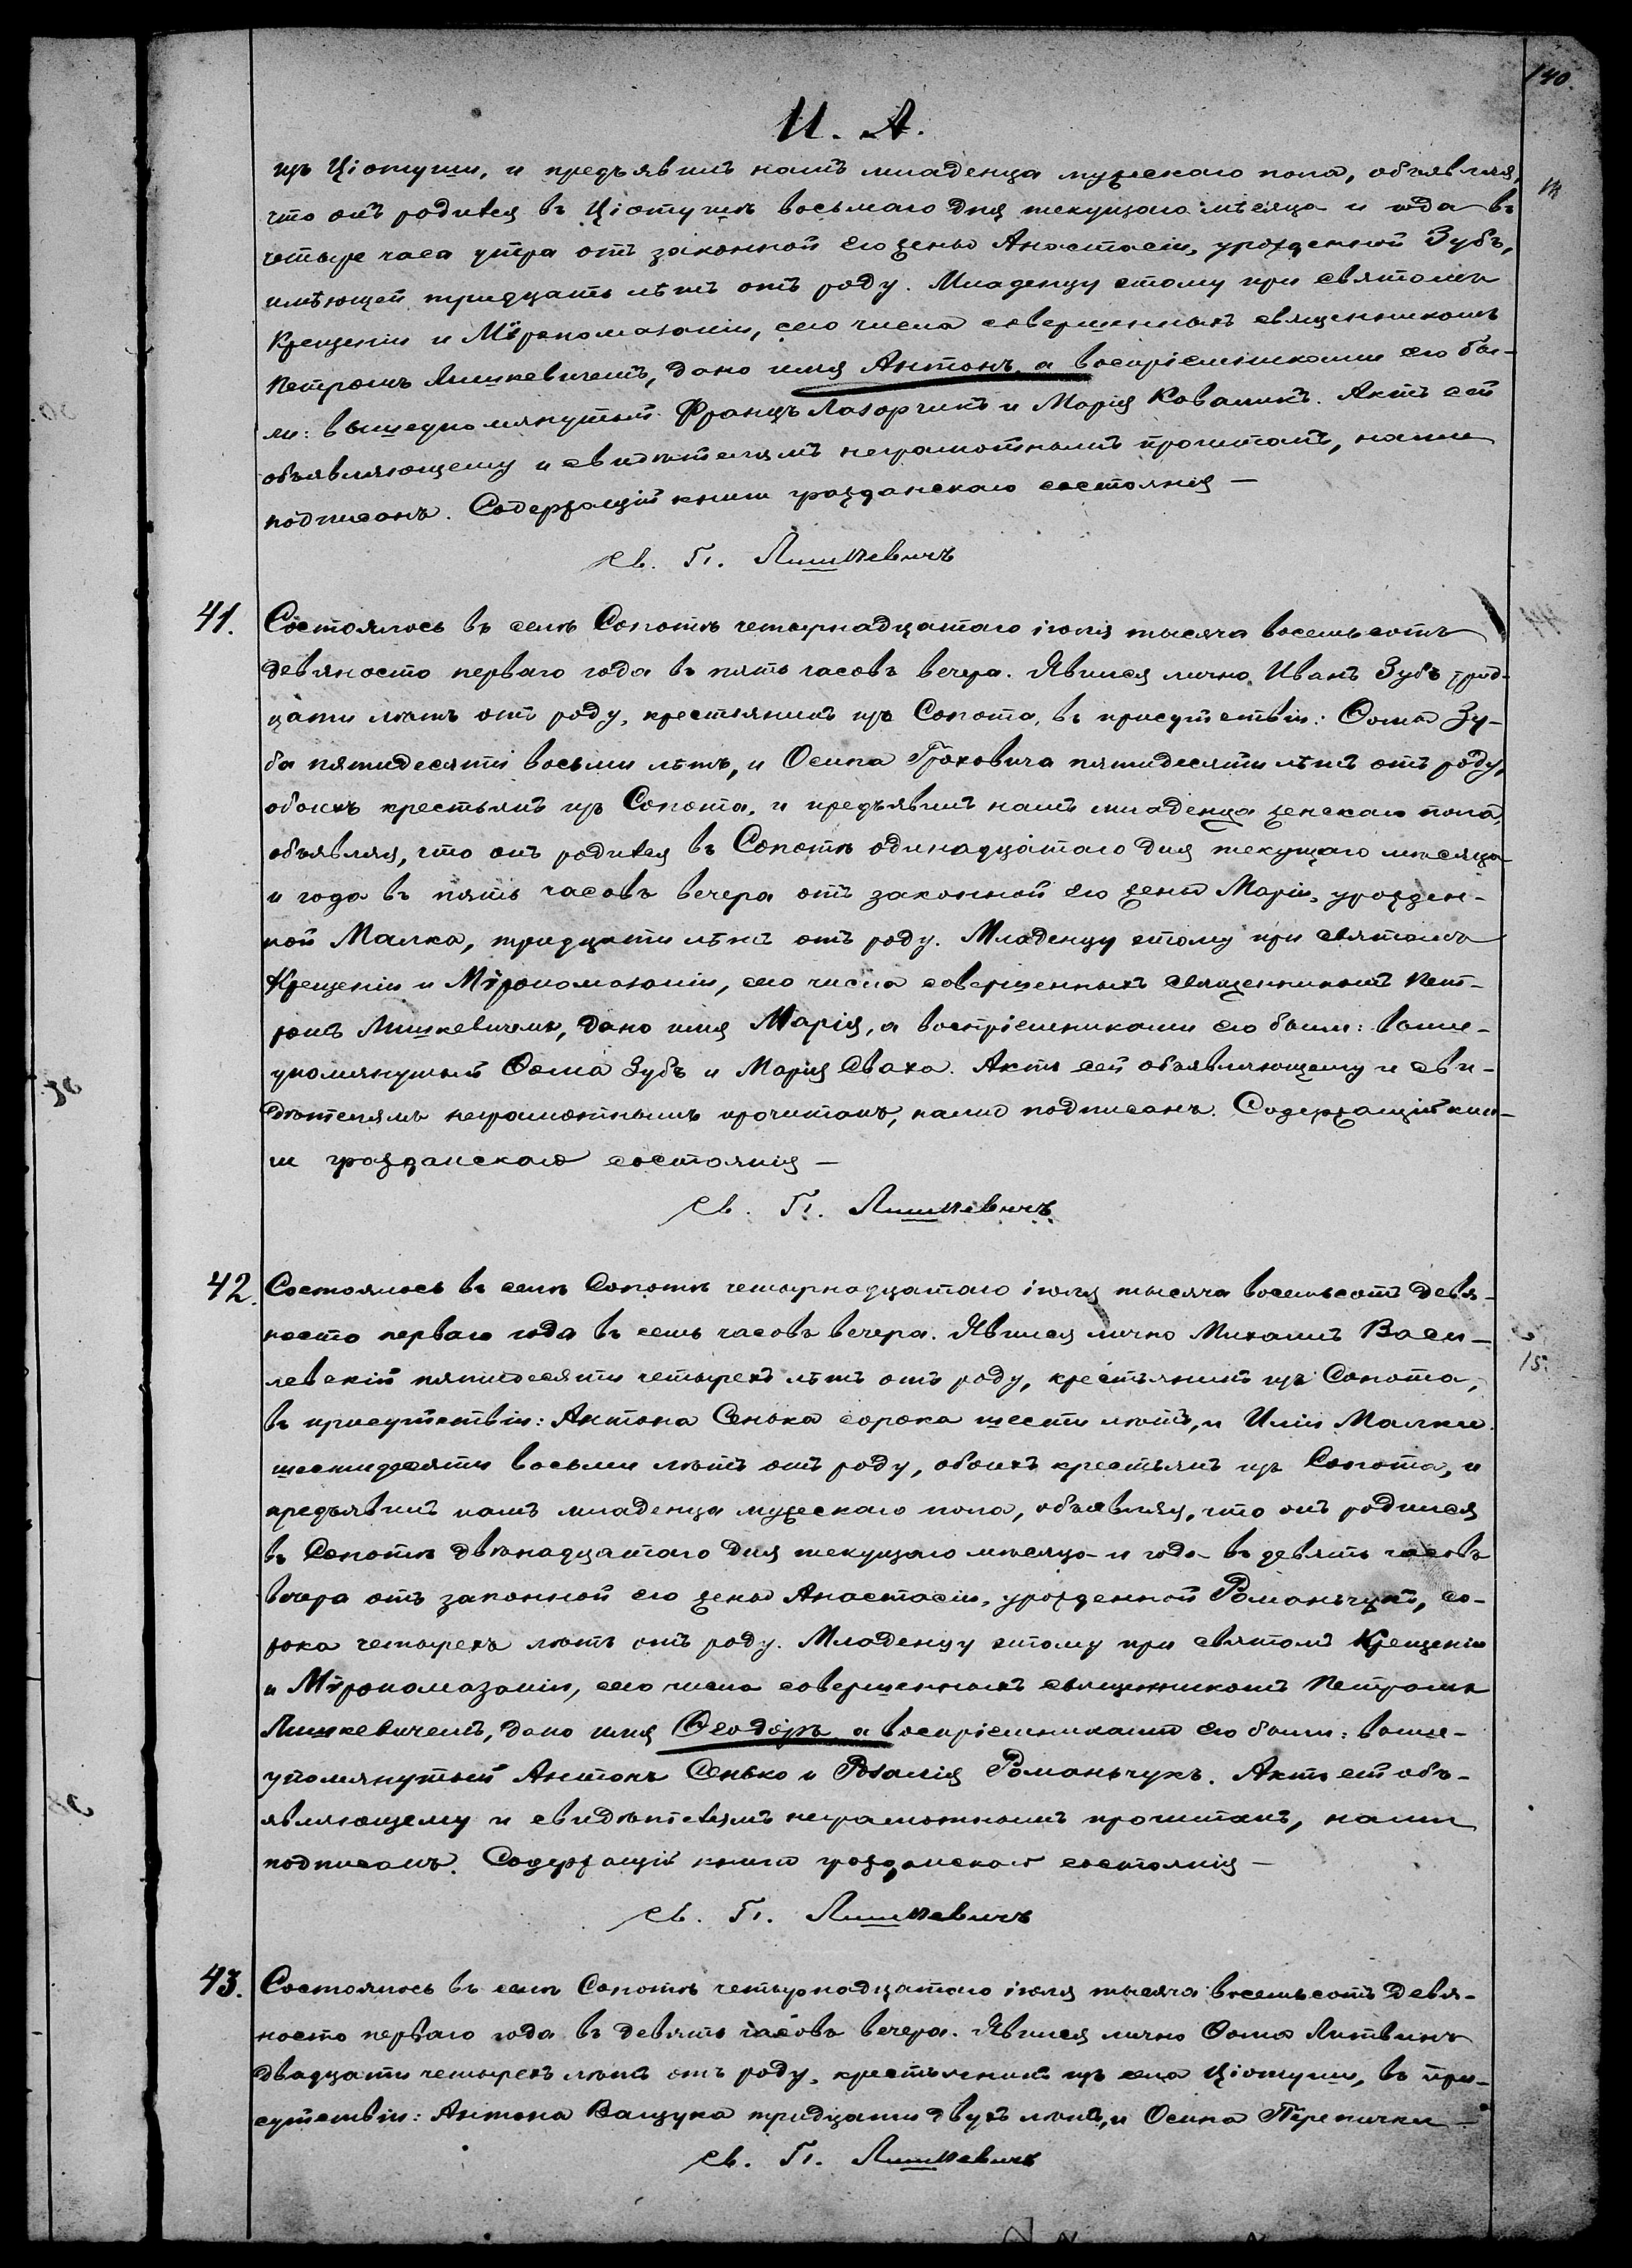 140.
И. А.
изъ Ціотуши, и предъявилъ намъ младенца мужескаго пола, объявляя,
что онъ родился въ Ціотушѣ восьмаго дня текущаго мѣсяца и года въ
четыре часа утра отъ законной его жены Анастасіи, урожденной Зубъ,
имѣющей тридцать лѣтъ отъ роду. Младенцу этому при святомъ
Крещеніи и Мѵропомазаніи, сего числа совершенныхъ священникомъ
Петромъ Лишкевичемъ, дано имя Антонъ, а воспріемниками его бы-
ли: вышеупомянутый Францъ Лазорчикъ и Марія Коваликъ. Актъ сей
объявляющему и свидѣтелямъ неграмотнымъ прочитанъ, нами
подписанъ. Содержащій книги гражданскаго состоянія —
св. П. Лишкевичъ
41. Состоялось въ селѣ Сопотѣ четырнадцатаго іюля тысяча восемьсотъ
девяносто перваго года въ пять часовъ вечера. Явился лично Иванъ Зубъ трид-
цати лѣтъ отъ роду, крестьянинъ изъ Сопота, въ присутствіи: Ѳомы Зу-
ба пятидесяти восьми лѣтъ, и Осипа Гроховича пятидесяти лѣтъ отъ роду,
обоихъ крестьянъ изъ Сопота, и предъявилъ намъ младенца женскаго пола,
объявляя, что онъ родился въ Сопотѣ одинадцатаго дня текущаго мѣсяца
и года въ пять часовъ вечера отъ законной его жены Маріи, урожден-
ной Малка, тридцати лѣтъ отъ роду. Младенцу этому при святомъ
Крещеніи и Мѵропомазаніи, сего числа совершенныхъ священникомъ Пет-
ромъ Лишкевичемъ, дано имя Марія, а воспріемниками его были: выше-
упомянутый Ѳома Зубъ и Марія Сваха. Актъ сей объявляющему и сви-
дѣтелямъ неграмотнымъ прочитанъ, нами подписанъ. Содержащій кни-
ги гражданскаго состоянія —
св. П. Лишкевичъ
42. Состоялось въ селѣ Сопотѣ четырнадцатаго іюля тысяча восемьсотъ девя-
носто перваго года въ семь часовъ вечера. Явился лично Михаилъ Васи-
левскій пятидесяти четырехъ лѣтъ отъ роду, крестьянинъ изъ Сопота,
15.
въ присутствіи: Антона Сенька сорока шести лѣтъ, и Иліи Малки
шестидесяти восьми лѣтъ отъ роду, обоихъ крестьянъ изъ Сопота, и
предъявилъ намъ младенца мужескаго пола, объявляя, что онъ родился
въ Сопотѣ двѣнадцатаго дня текущаго мѣсяца и года въ девять часовъ
вечера отъ законной его жены Анастасіи, урожденной Романьчукъ, со-
рока четырехъ лѣтъ отъ роду. Младенцу этому при святомъ Крещеніи
и Мѵропомазаніи, сего числа совершенныхъ священникомъ Петромъ
Лишкевичемъ, дано имя Ѳеодоръ, а воспріемниками его были: выше-
упомянутый Антонъ Сенько и Розалія Романьчукъ. Актъ сей объ-
являющему и свидѣтелямъ неграмотнымъ прочитанъ, нами
подписанъ. Содержащій книги гражданскаго состоянія —
св. П. Лишкевичъ
43. Состоялось въ селѣ Сопотѣ четырнадцатаго іюля тысяча восемьсотъ девя-
носто перваго года въ девять часовъ вечера. Явился лично Ѳома Литвинъ
двадцати четырехъ лѣтъ отъ роду, крестьянинъ изъ села Ціотуши, въ при-
сутствіи: Антона Ващука тридцати двухъ лѣтъ, и Осипа Перепички
св. П. Лишкевичъ